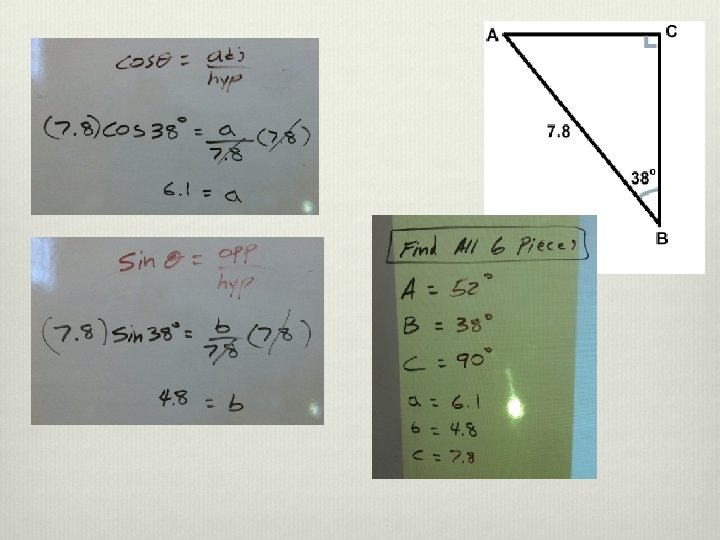 cosθ = adj/hyp
(7.8)cos38° = a/7.8 (7.8)
6.1 = a
sin θ = opp/hyp
(7.8)sin38° = b/7.8 (7.8)
4.8 = b
A
C
7.8
38°
B
Find All 6 Pieces
A = 52°
B = 38°
C = 90°
a = 6.1
b = 4.8
c = 7.8